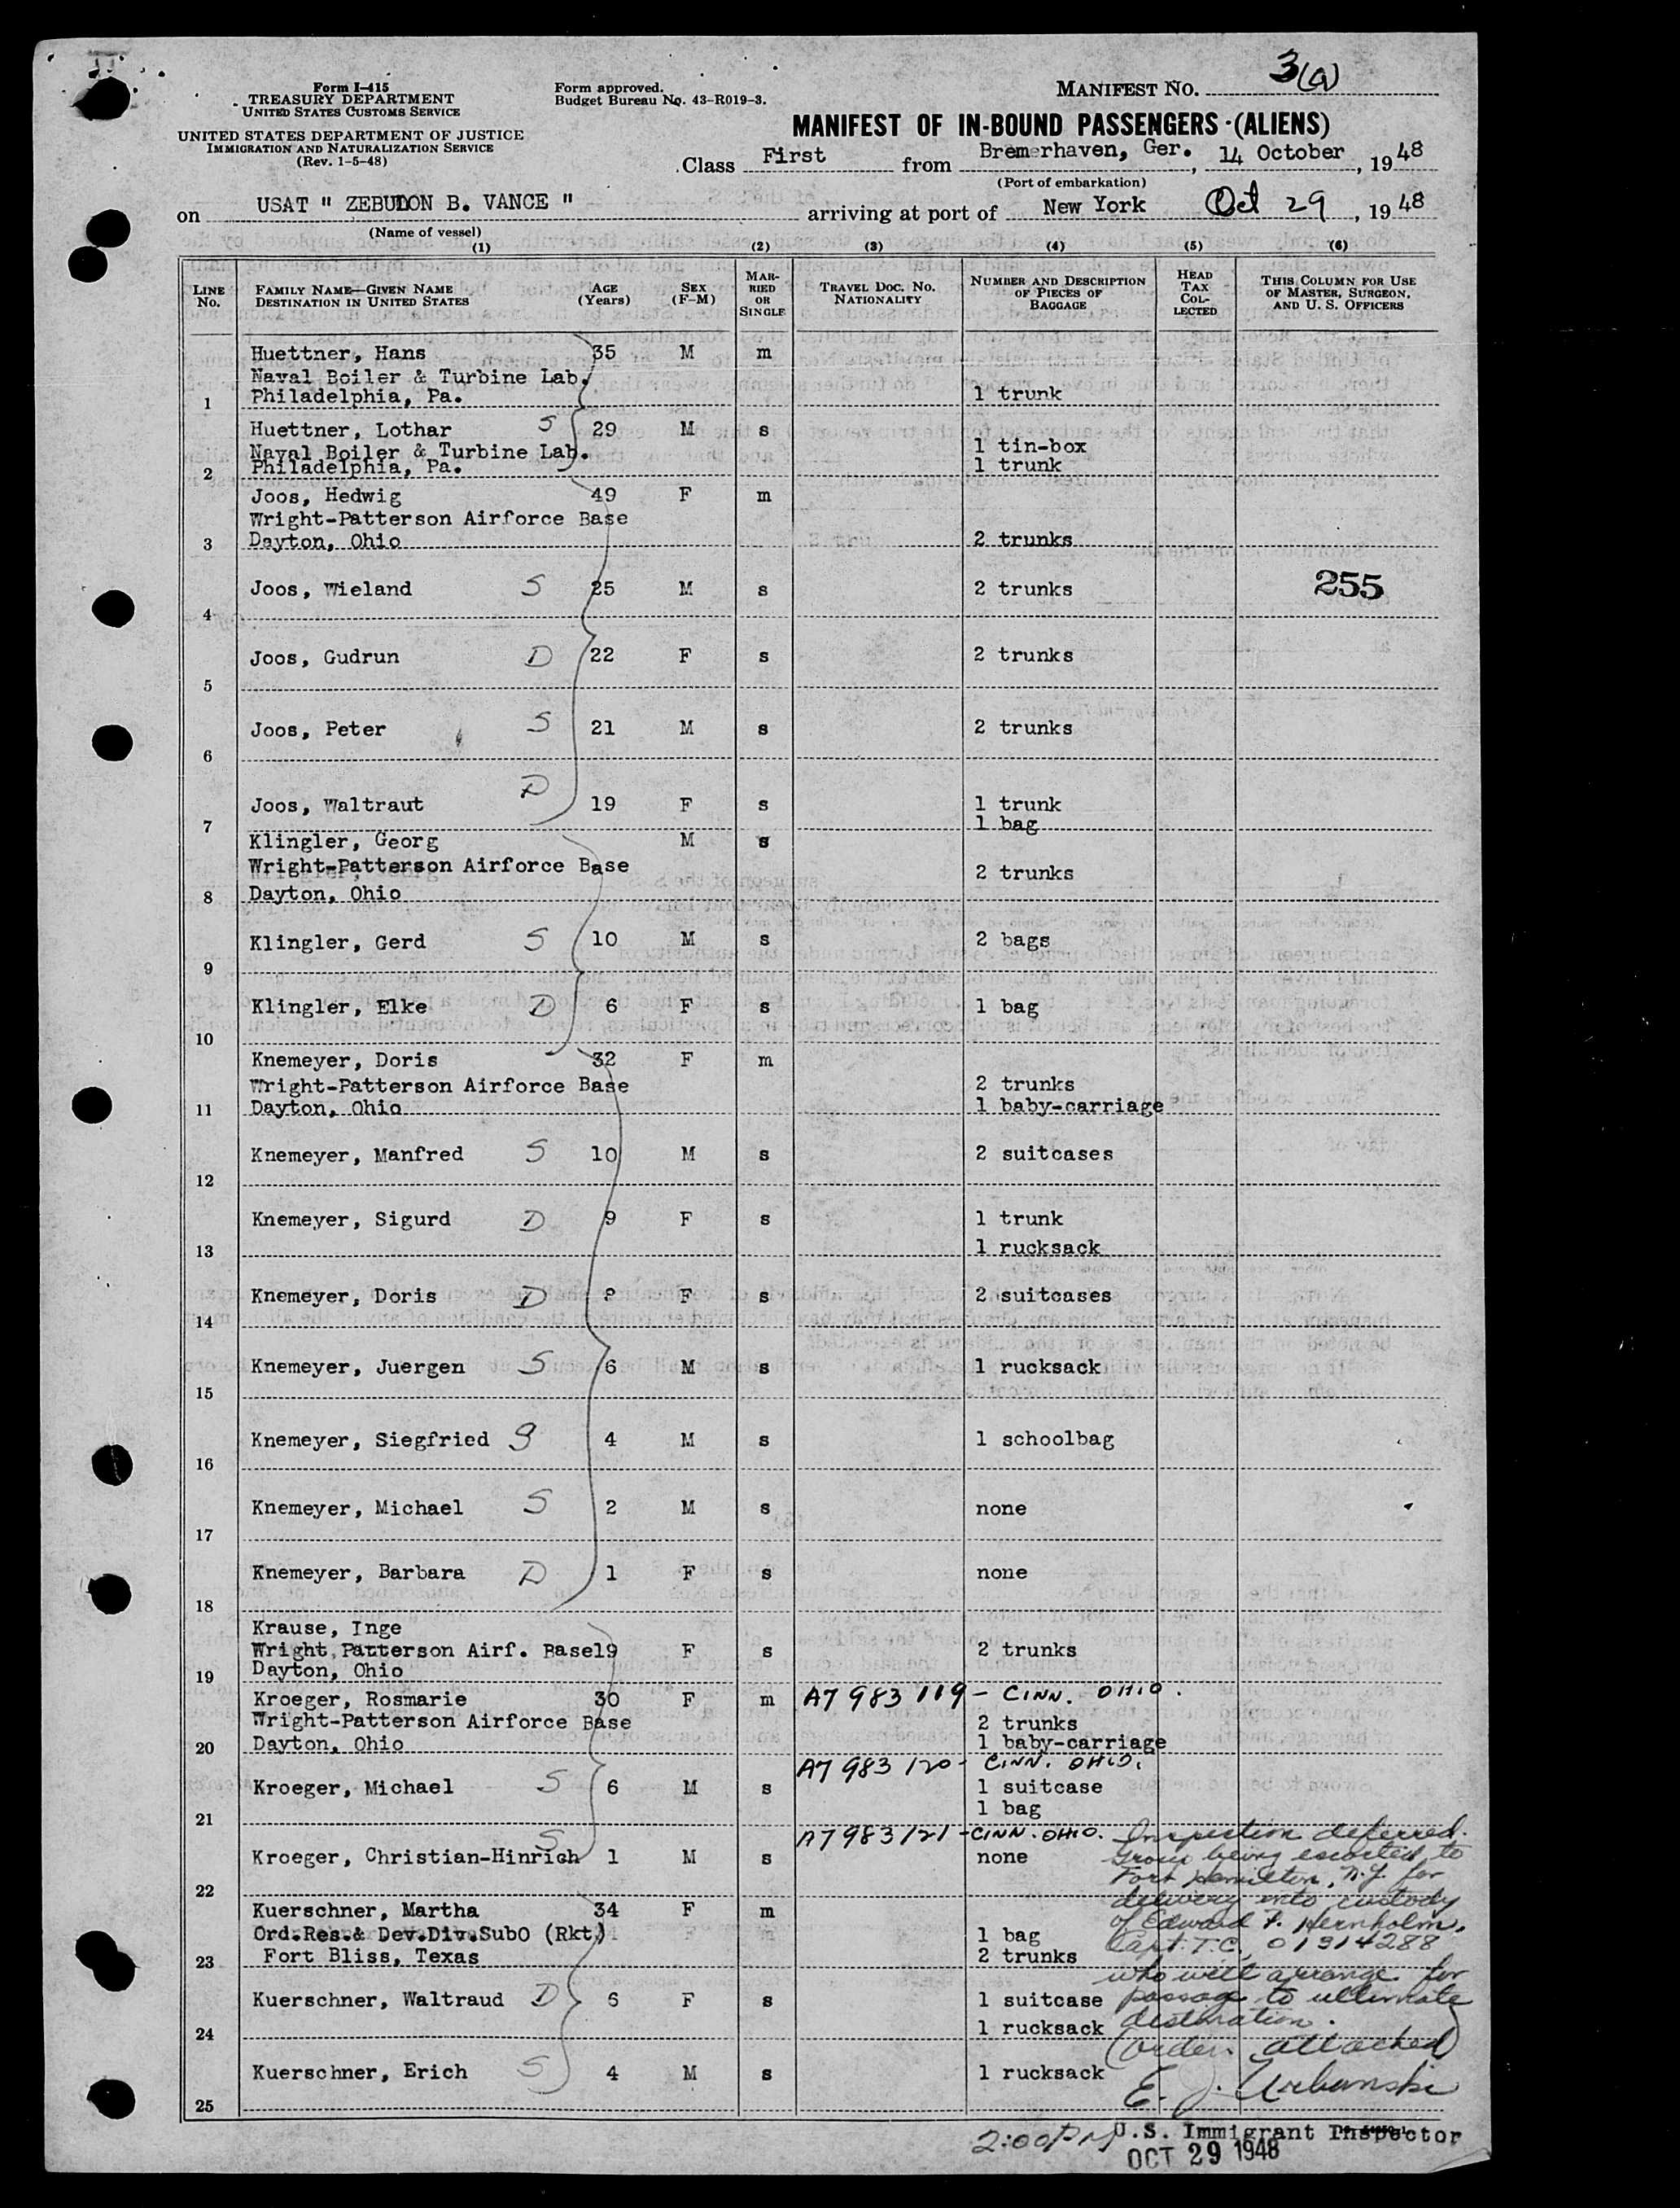 3(a)
Form I-415
TREASURY DEPARTMENT
UNITED STATES CUSTOMS SERVICE
UNITED STATES DEPARTMENT OF JUSTICE
IMMIGRATION AND NATURALIZATION SERVICE
(Rev. 1-5-48)
Form approved.
Budget Bureau No. 43-R019-3.
MANIFEST NO.
MANIFEST OF IN-BOUND PASSENGERS (ALIENS)
Class First from Bremerhaven, Ger., 14 October, 1948
(Port of embarkation)
on USAT " ZEBULON B. VANCE " arriving at port of New York Oct 29, 1948
(Name of vessel)
(1) (2) (3) (4) (5) (6)
LINE No. FAMILY NAME—GIVEN NAME DESTINATION IN UNITED STATES AGE (Years) SEX (F-M) MARRIED OR SINGLE TRAVEL DOC. NO. NATIONALITY NUMBER AND DESCRIPTION OF PIECES OF BAGGAGE HEAD TAX COLLECTED THIS COLUMN FOR USE OF MASTER, SURGEON, AND U. S. OFFICERS
Huettner, Hans 35 M m
Naval Boiler & Turbine Lab.
1 Philadelphia, Pa. 1 trunk
Huettner, Lothar S 29 M s
Naval Boiler & Turbine Lab. 1 tin-box
2 Philadelphia, Pa. 1 trunk
Joos, Hedwig 49 F m
Wright-Patterson Airforce Base
3 Dayton, Ohio 2 trunks
Joos, Wieland S 25 M s 2 trunks 255
4
Joos, Gudrun D 22 F s 2 trunks
5
Joos, Peter S 21 M s 2 trunks
6
Joos, Waltraut D 19 F s 1 trunk
7 1 bag
Klingler, Georg M s
Wright-Patterson Airforce Base 2 trunks
8 Dayton, Ohio
Klingler, Gerd S 10 M s 2 bags
9
Klingler, Elke D 6 F s 1 bag
10
Knemeyer, Doris 32 F m
Wright-Patterson Airforce Base 2 trunks
11 Dayton, Ohio 1 baby-carriage
Knemeyer, Manfred S 10 M s 2 suitcases
12
Knemeyer, Sigurd D 9 F s 1 trunk
13 1 rucksack
Knemeyer, Doris D F s 2 suitcases
14
Knemeyer, Juergen S 6 M s 1 rucksack
15
Knemeyer, Siegfried S 4 M s 1 schoolbag
16
Knemeyer, Michael S 2 M s none
17
Knemeyer, Barbara D 1 F s none
18
Krause, Inge
Wright Patterson Airf. Base 19 F s 2 trunks
19 Dayton, Ohio
Kroeger, Rosmarie 30 F m A7 983 119 - CINN. OHIO.
Wright-Patterson Airforce Base 2 trunks
20 Dayton, Ohio 1 baby-carriage
A7 983 120 - CINN. OHIO.
Kroeger, Michael S 6 M s 1 suitcase
21 1 bag
A7983121 - CINN. OHIO. Inspection deferred.
Kroeger, Christian-Hinrich S 1 M s none Group being escorted to
22 Fort Hamilton, N.Y. for
delivery into custody
Kuerschner, Martha 34 F m of Edward F. Hernholm,
Ord.Res.& Dev.Div.SubO (Rkt.) 1 bag Capt. T.C., 01914288
23 Fort Bliss, Texas 2 trunks
who will arrange for
Kuerschner, Waltraud D 6 F s 1 suitcase passage to ultimate
24 1 rucksack destination.
(orders attached)
Kuerschner, Erich S 4 M s 1 rucksack
25 E. J. Urbanski
2:00 PM U.S. Immigrant Inspector
OCT 29 1948